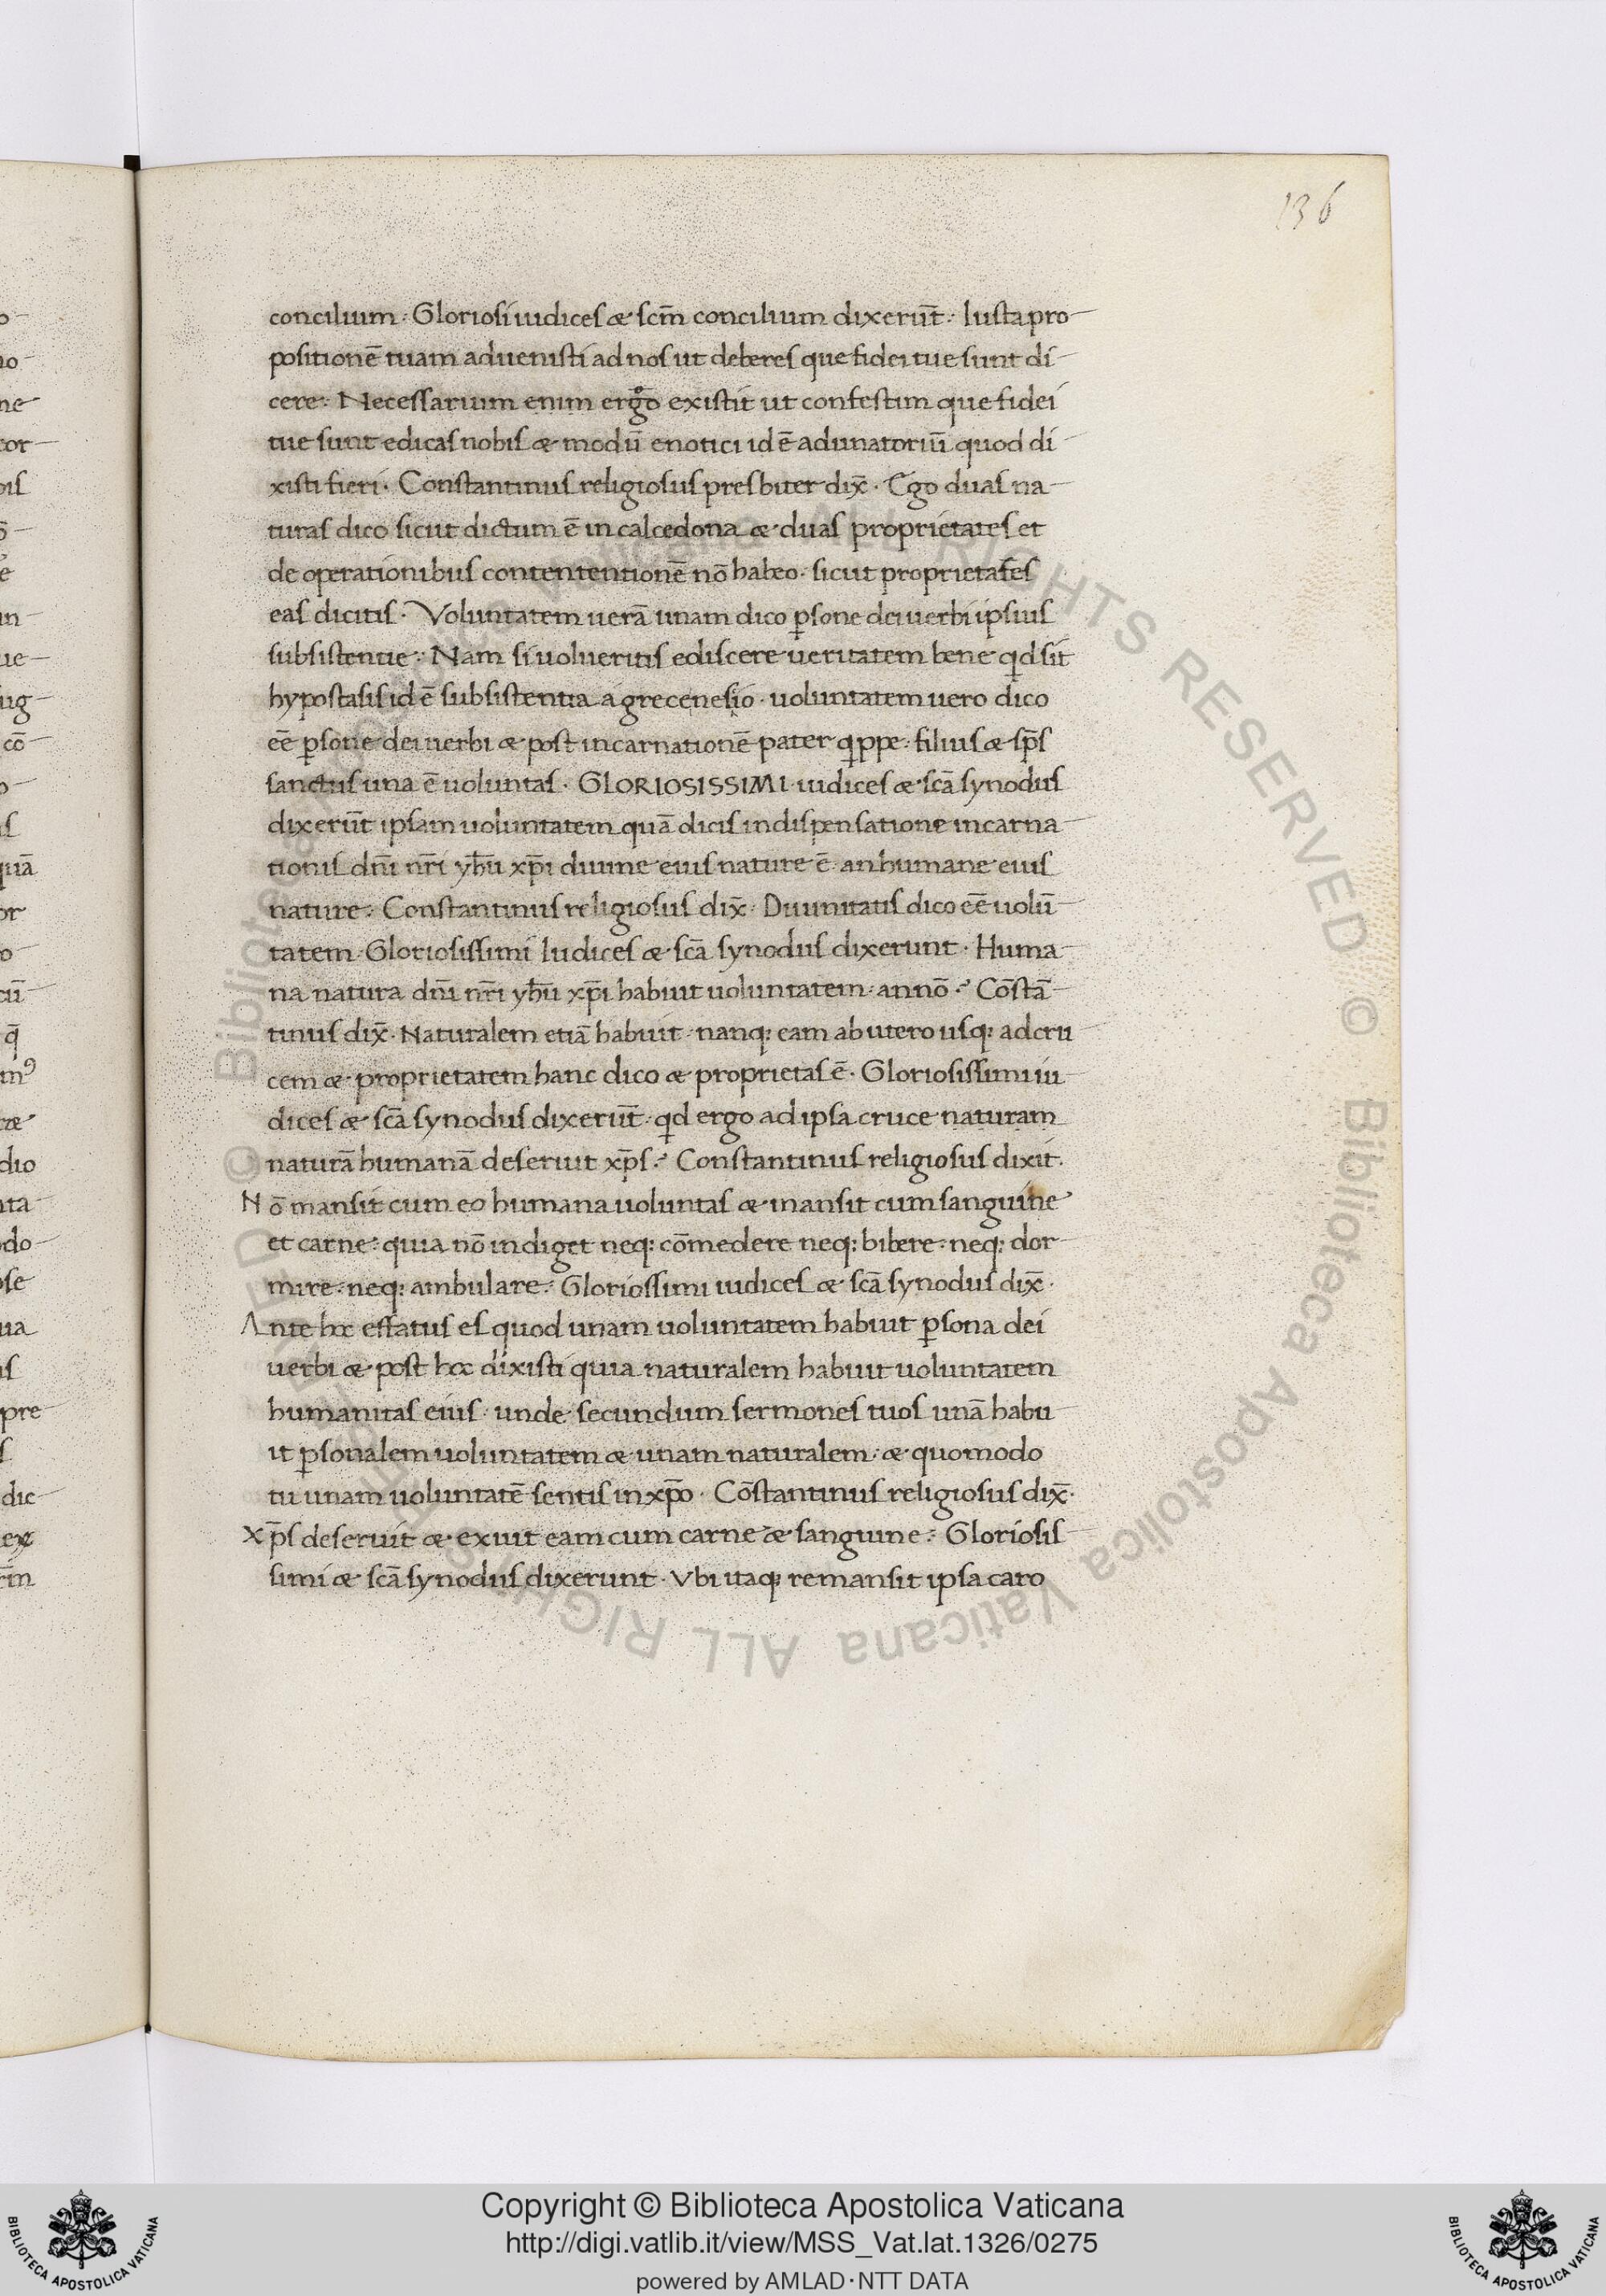 136
concilium· Gloriosi iudices æ scm̄ concilium dixerūt· Iusta pro
positionē tuam aduenisti ad nos ut deberes que fidei tue sunt di
cere· Necessarium enim ergo existit ut confestim que fidei
tue sunt edicas nobis æ modū enotici id ē adunatoriū quod di
xisti fieri· Constantinus religiosus presbiter dix̄· Ego duas na
turas dico sicut dictum ē in calcedona æ duas proprietates et
de operationibus contententionē nō habeo· sicut proprietates
eas dicitis· Voluntatem uerā unam dico ꝑsone dei uerbi ipsius
subsistentie· Nam si uolueritis ediscere ueritatem bene qd sit
hypostasis id ē subsistentia a grecenesio· uoluntatem uero dico
eē ꝑsone dei uerbi æ post incarnationē pater qppe· filius æ sp̄s
sanctus una ē uoluntas· GLORIOSISSIMI iudices æ scā synodus
dixerūt ipsam uoluntatem quā dicis in dispensatione incarna
tionis dn̄i nr̄i yhū xp̄i diuine eius nature ē an humane eius
nature· Constantinus religiosus dix̄· Diuinitatis dico eē uolū
tatem· Gloriosissimi Iudices æ scā synodus dixerunt· Huma
na natura dn̄i nr̄i yhū xp̄i habuit uoluntatem annō· Cōstā
tinus dix̄· Naturalem etiā habuit· nanq; eam ab utero usq; ad cru
cem æ proprietatem hanc dico æ proprietas ē· Gloriosissimi iu
dices æ scā synodus dixerūt· qd ergo ad ipsa cruce naturam
naturā humanā deseruit xp̄s· Constantinus religiosus dixit·
Nō mansit cum eo humana uoluntas æ mansit cum sanguine
et carne· quia nō indiget neq; cōmedere neq; bibere· neq; dor
mire· neq; ambulare· Gloriossimi iudices æ scā synodus dix̄·
Ante hoc effatus es quod unam uoluntatem habuit ꝑsona dei
uerbi æ post hoc dixisti quia naturalem habuit uoluntatem
humanitas eius· unde secundum sermones tuos unā habu
it ꝑsonalem uoluntatem æ unam naturalem· æ quomodo
tu unam uoluntatē sentis in xp̄o· Cōstantinus religiosus dix̄·
Xp̄s deseruit æ exuit eam cum carne æ sanguine· Gloriosis
simi æ scā synodus dixerunt· Vbi itaq; remansit ipsa caro
© Biblioteca Apostolica Vaticana ALL RIGHTS RESERVED
Copyright © Biblioteca Apostolica Vaticana
http://digi.vatlib.it/view/MSS_Vat.lat.1326/0275
powered by AMLAD·NTT DATA
BIBLIOTECA APOSTOLICA VATICANA
BIBLIOTECA APOSTOLICA VATICANA